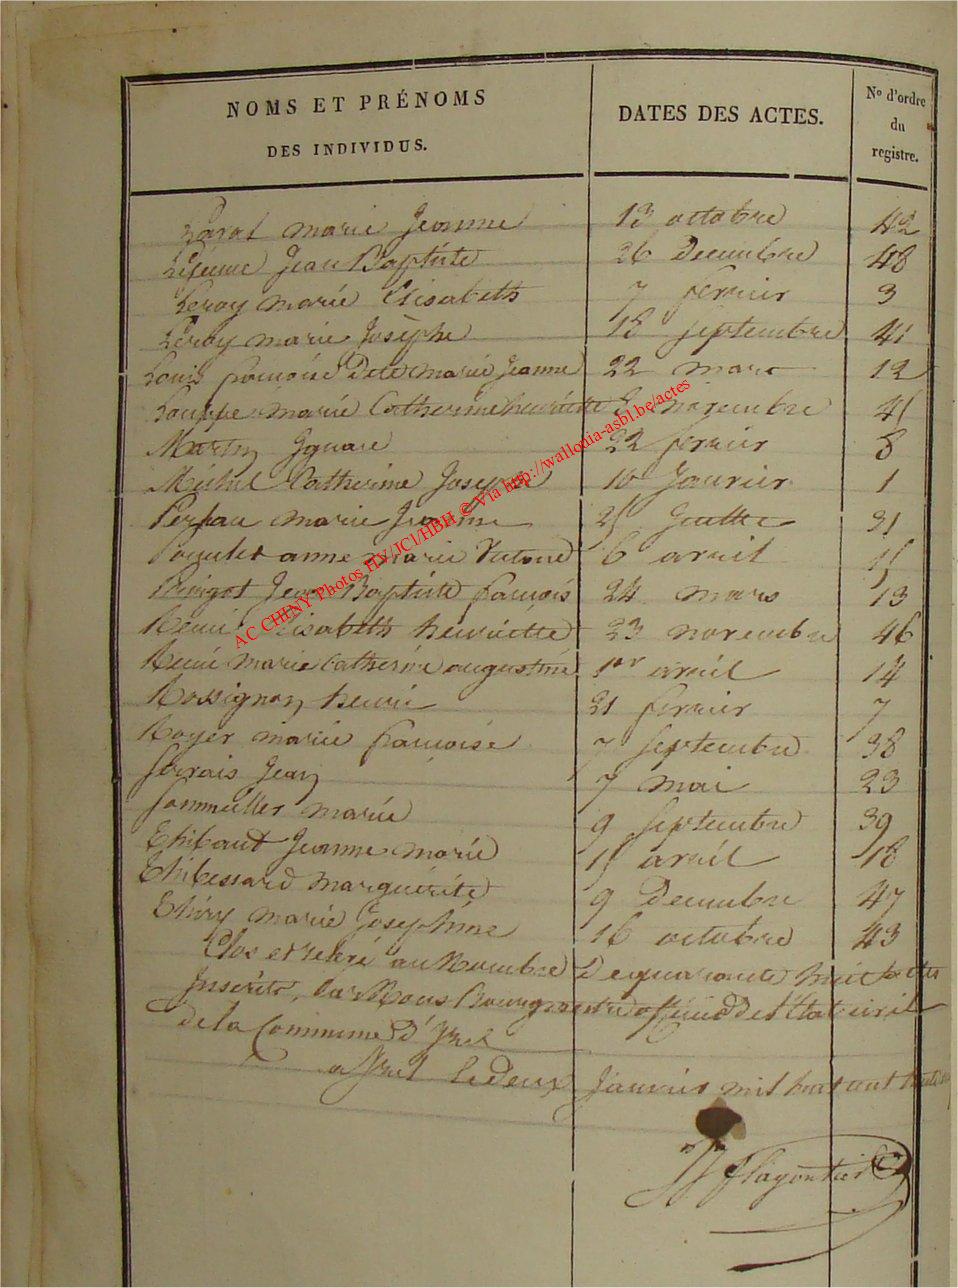 NOMS ET PRÉNOMS
DES INDIVIDUS.
DATES DES ACTES.
No d'ordre
du
registre.
marie Jeanne 13 octobre 42
Lejeune Jean Baptiste 26 Decembre 48
Leroy marie Elisabeth 7 fevrier 3
Leroy marie Josèphe 18 Septembre 41
Louis marie Jeanne 22 mars 12
Louppe marie Catherine henriette novembre
Martin Ignace 22 fevrier 8
Michel Catherine Josephe 10 Janvier 1
marie 31
anne marie 6 avril 15
Jean Baptiste francois 24 mars 13
Elisabeth henriette 23 novembre 46
René marie Catherine augustine 1er avril 14
Rossignon henri 21 fevrier 7
Royer marie francoise 7 Septembre 38
Servais Jean 7 mai 23
marie 9 Septembre 39
Thibaut Jeanne marie 15 avril 18
Thibessard marguerite 9 Decembre 47
Thiry marie Josephine 16 octobre 43
Clos et au Nombre De quarante huit actes
Inscrits, par Nous Bourgmestre officier de l'Etat civil
de la Commune d'Izel
a Izel le deux Janvier mil huit cent
AC CHINY Photos HV/JCl/HBH © Via http://wallonia-asbl.be/actes